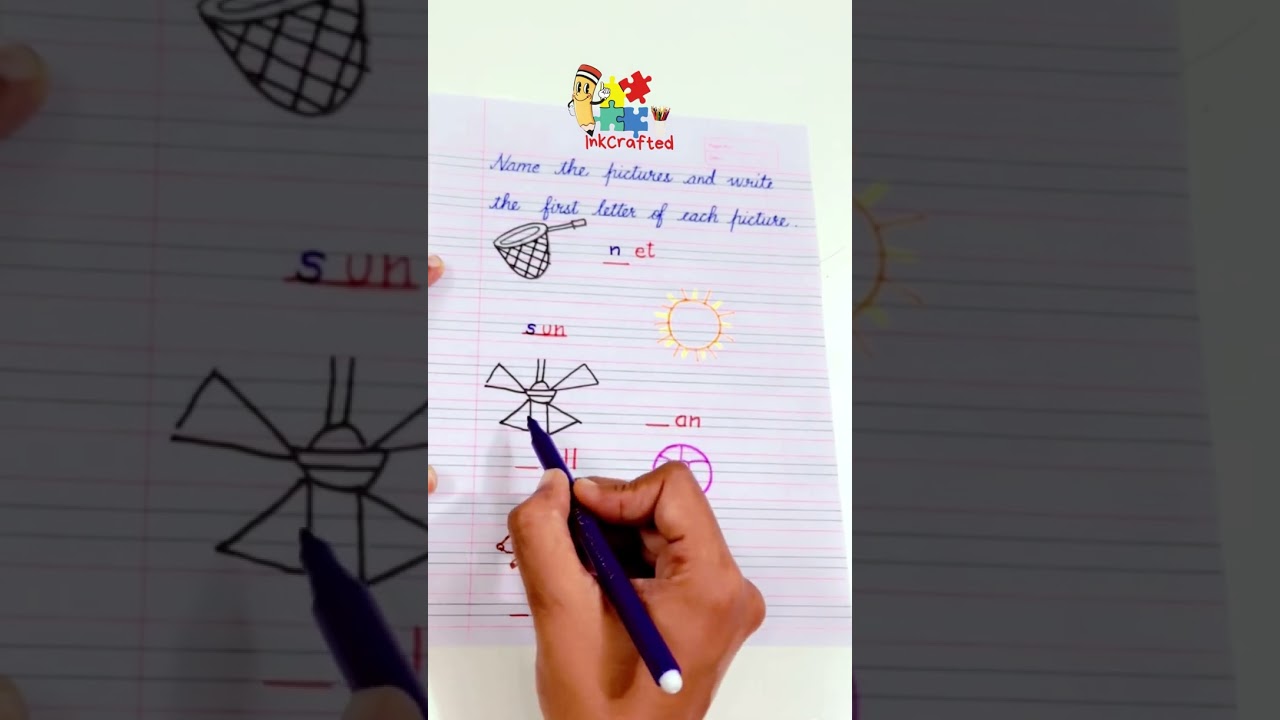 InkCrafted
Name the pictures and write
the first letter of each picture.
n et
s un
_ an
_ ll
_